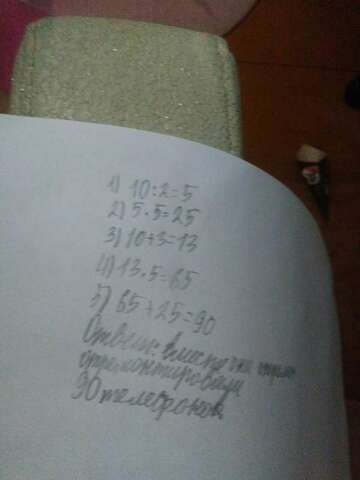 1) 10:2=5
2) 5·5=25
3) 10+3=13
4) 13·5=65
5) 65+25=90
Ответ: вместе
отремонтировали
90 телефонов